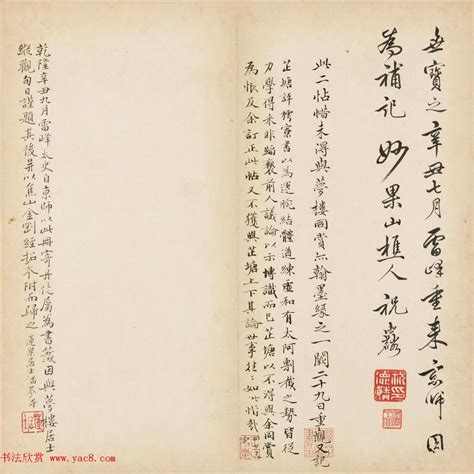 無寶之辛丑七月雷峰重来京師因
為補記 妙果山樵人祝
此二帖惜未得與夢樓同賞亦翰墨緣之一闕二十九日重觀又記
芷塘評書以為運腕結體遒練虛和有太阿剸截之勢皆從
力學得来非蹈襲前人議論以示博識而已芷塘以不得與余同賞
為恨及余訂正此帖又不獲與芷塘上下其論世事往往如此惜哉
乾隆辛丑九月雷峰太史自京師以此冊寄丹徒属為書籤因與夢樓居士
縱觀旬日謹題其後并以焦山金剛經拓本附而歸之
书法欣赏 www.yac8.com